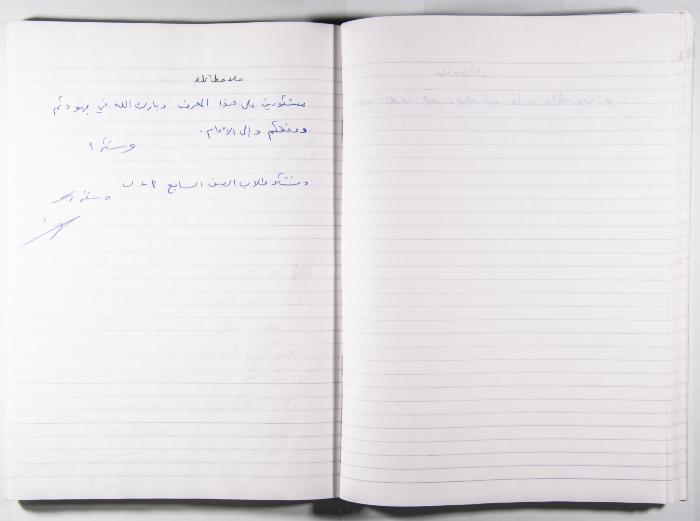 ملاحظات
مشكورين على هذا المعرض وبارك الله في جهودكم
ووفقكم وإلى الأمام.
وشكرا
ونشكر طلاب الصف السابع
وشكرا